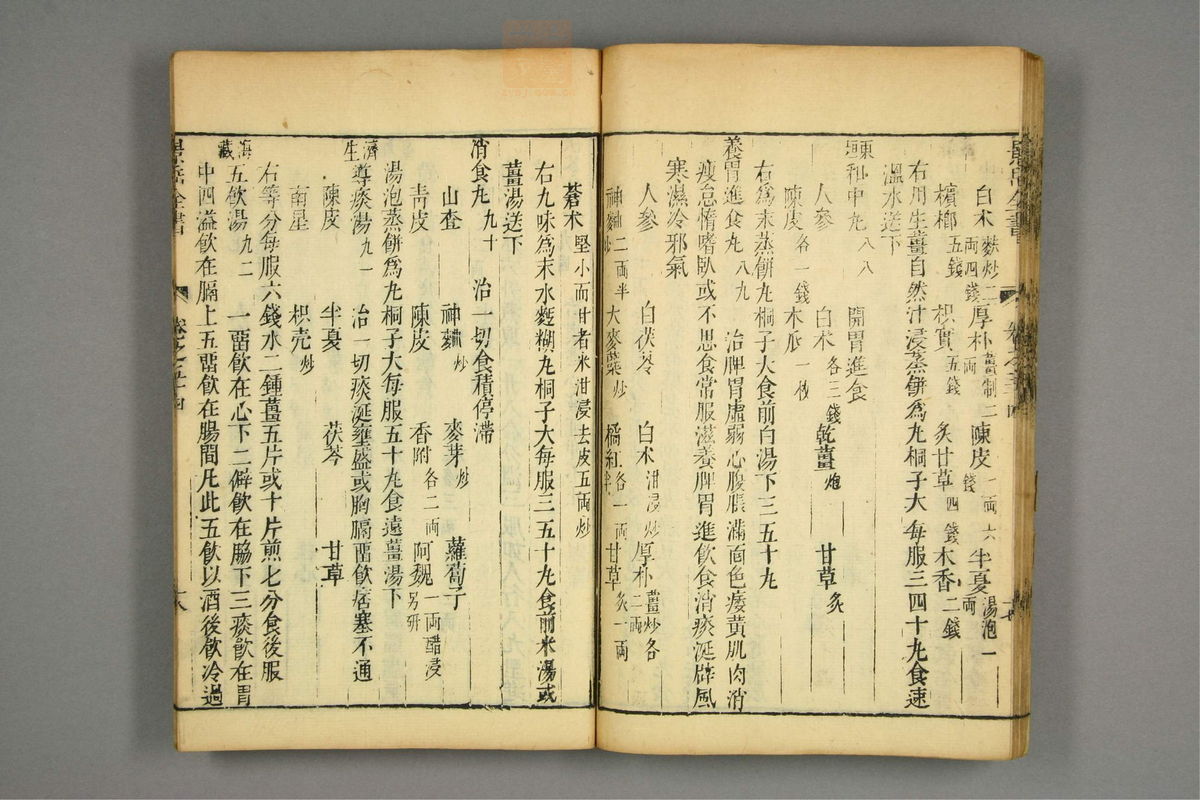 景岳全書 卷之五十四
白朮麩炒二兩四錢 厚朴薑製二兩 陳皮一兩六錢 半夏湯泡一兩
檳榔五錢 枳實五錢 炙甘草四錢 木香二錢
右用生薑自然汁浸蒸餅爲丸桐子大每服三四十丸食遠
溫水送下
東垣和中丸八八 開胃進食
人參 白朮各三錢 乾薑炮 甘草炙
陳皮各一錢 木瓜一枚
右爲末蒸餅丸桐子大食前白湯下三五十丸
養胃進食丸八九 治脾胃虛弱心腹脹滿面色痿黃肌肉消
瘦怠惰嗜臥或不思食常服滋養脾胃進飲食消痰涎辟風
寒濕冷邪氣
人參 白茯苓 白朮泔浸炒 厚朴薑炒各二兩
神麯二兩半炒 大麥蘖炒 橘紅各一兩半 甘草炙一兩
蒼朮堅小而甘者米泔浸去皮五兩炒
右九味爲末水麪糊丸桐子大每服三五十丸食前米湯或
薑湯送下
消食丸九十 治一切食積停滯
山查 神麯炒 麥芽炒 蘿蔔子
青皮 陳皮 香附各二兩 阿魏一兩醋浸另研
湯泡蒸餅爲丸桐子大每服五十丸食遠薑湯下
濟生導痰湯九一 治一切痰涎壅盛或胸膈畱飲痞塞不通
陳皮 半夏 茯苓 甘草
南星 枳壳炒
右等分每服六錢水二鍾薑五片或十片煎七分食後服
海藏五飲湯九二 一畱飲在心下二僻飲在脇下三痰飲在胃
中四溢飲在膈上五畱飲在腸間凡此五飲以酒後飲冷過
景岳全書 卷之五十四 十八